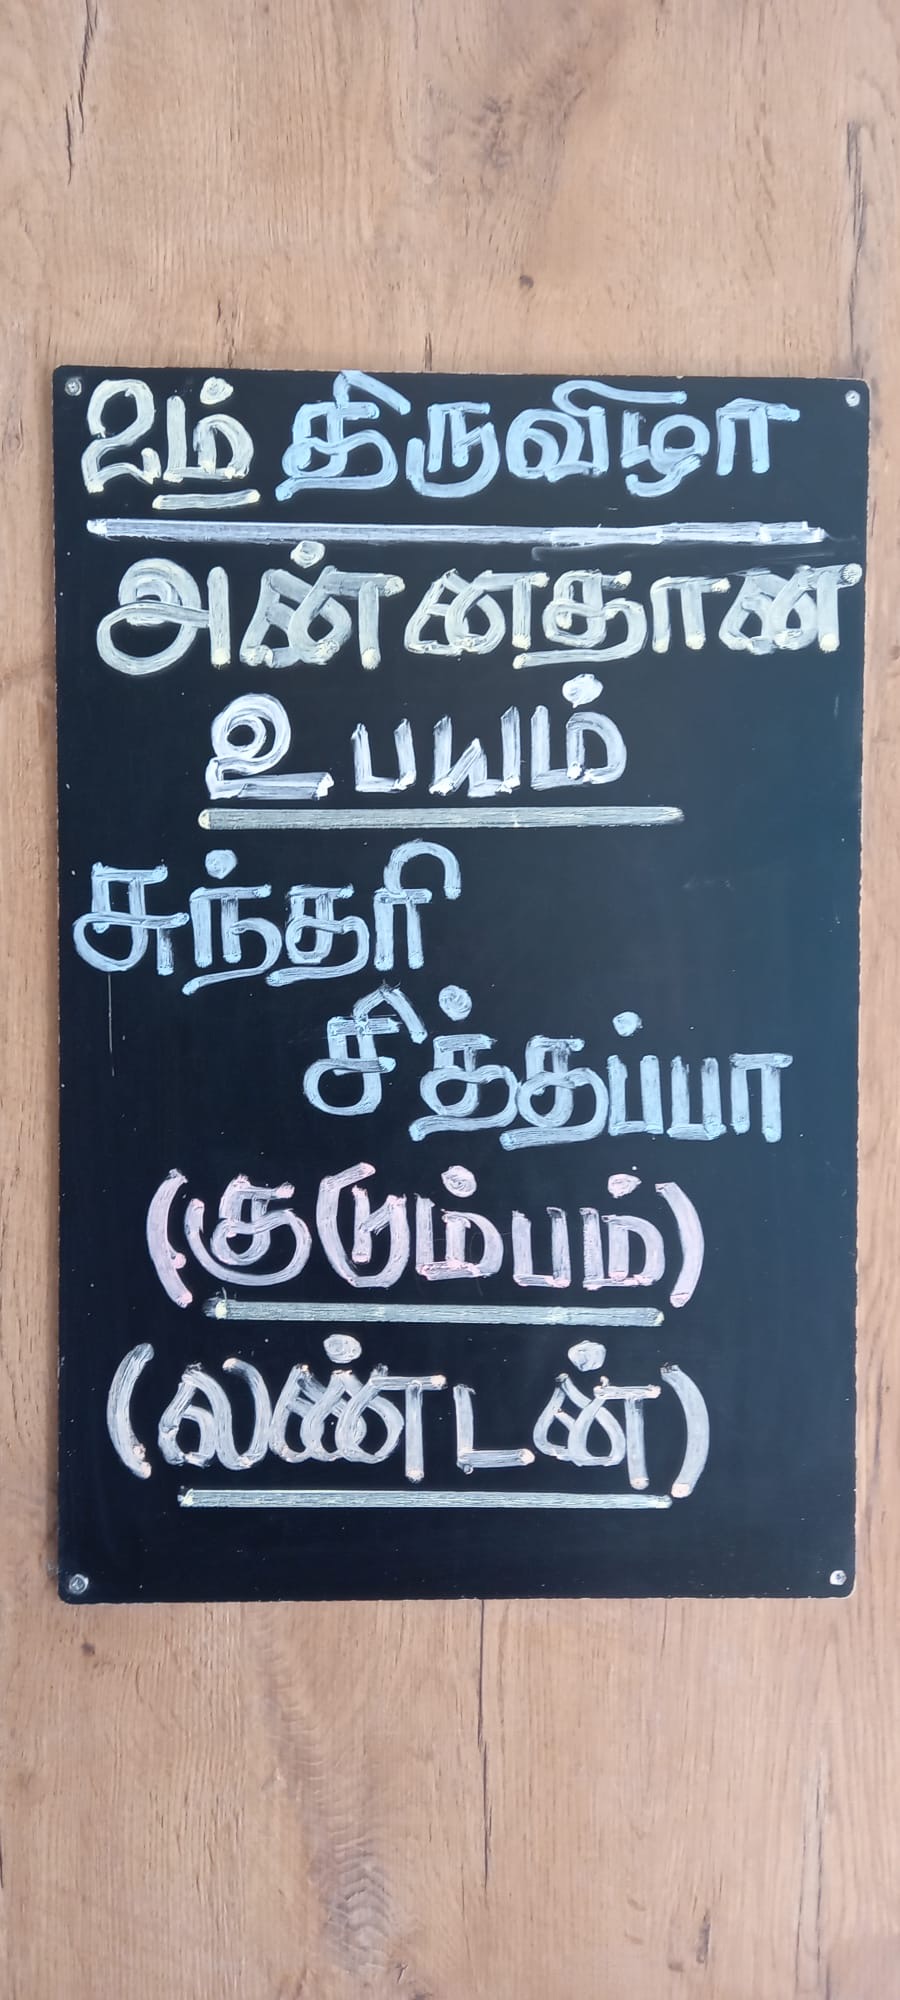 2ம் திருவிழா
அன்னதான
உபயம்
சுந்தரி
சித்தப்பா
(குடும்பம்)
(லண்டன்)